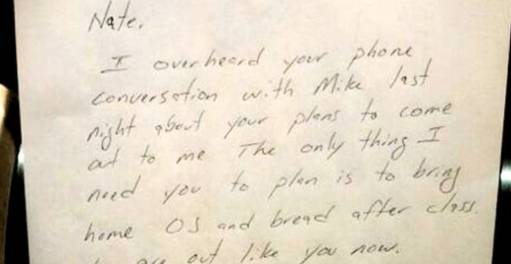 Nate,
I overheard your phone
conversation with Mike last
night about your plans to come
out to me The only thing I
need you to plan is to bring
home OJ and bread after class.
are out like you now.